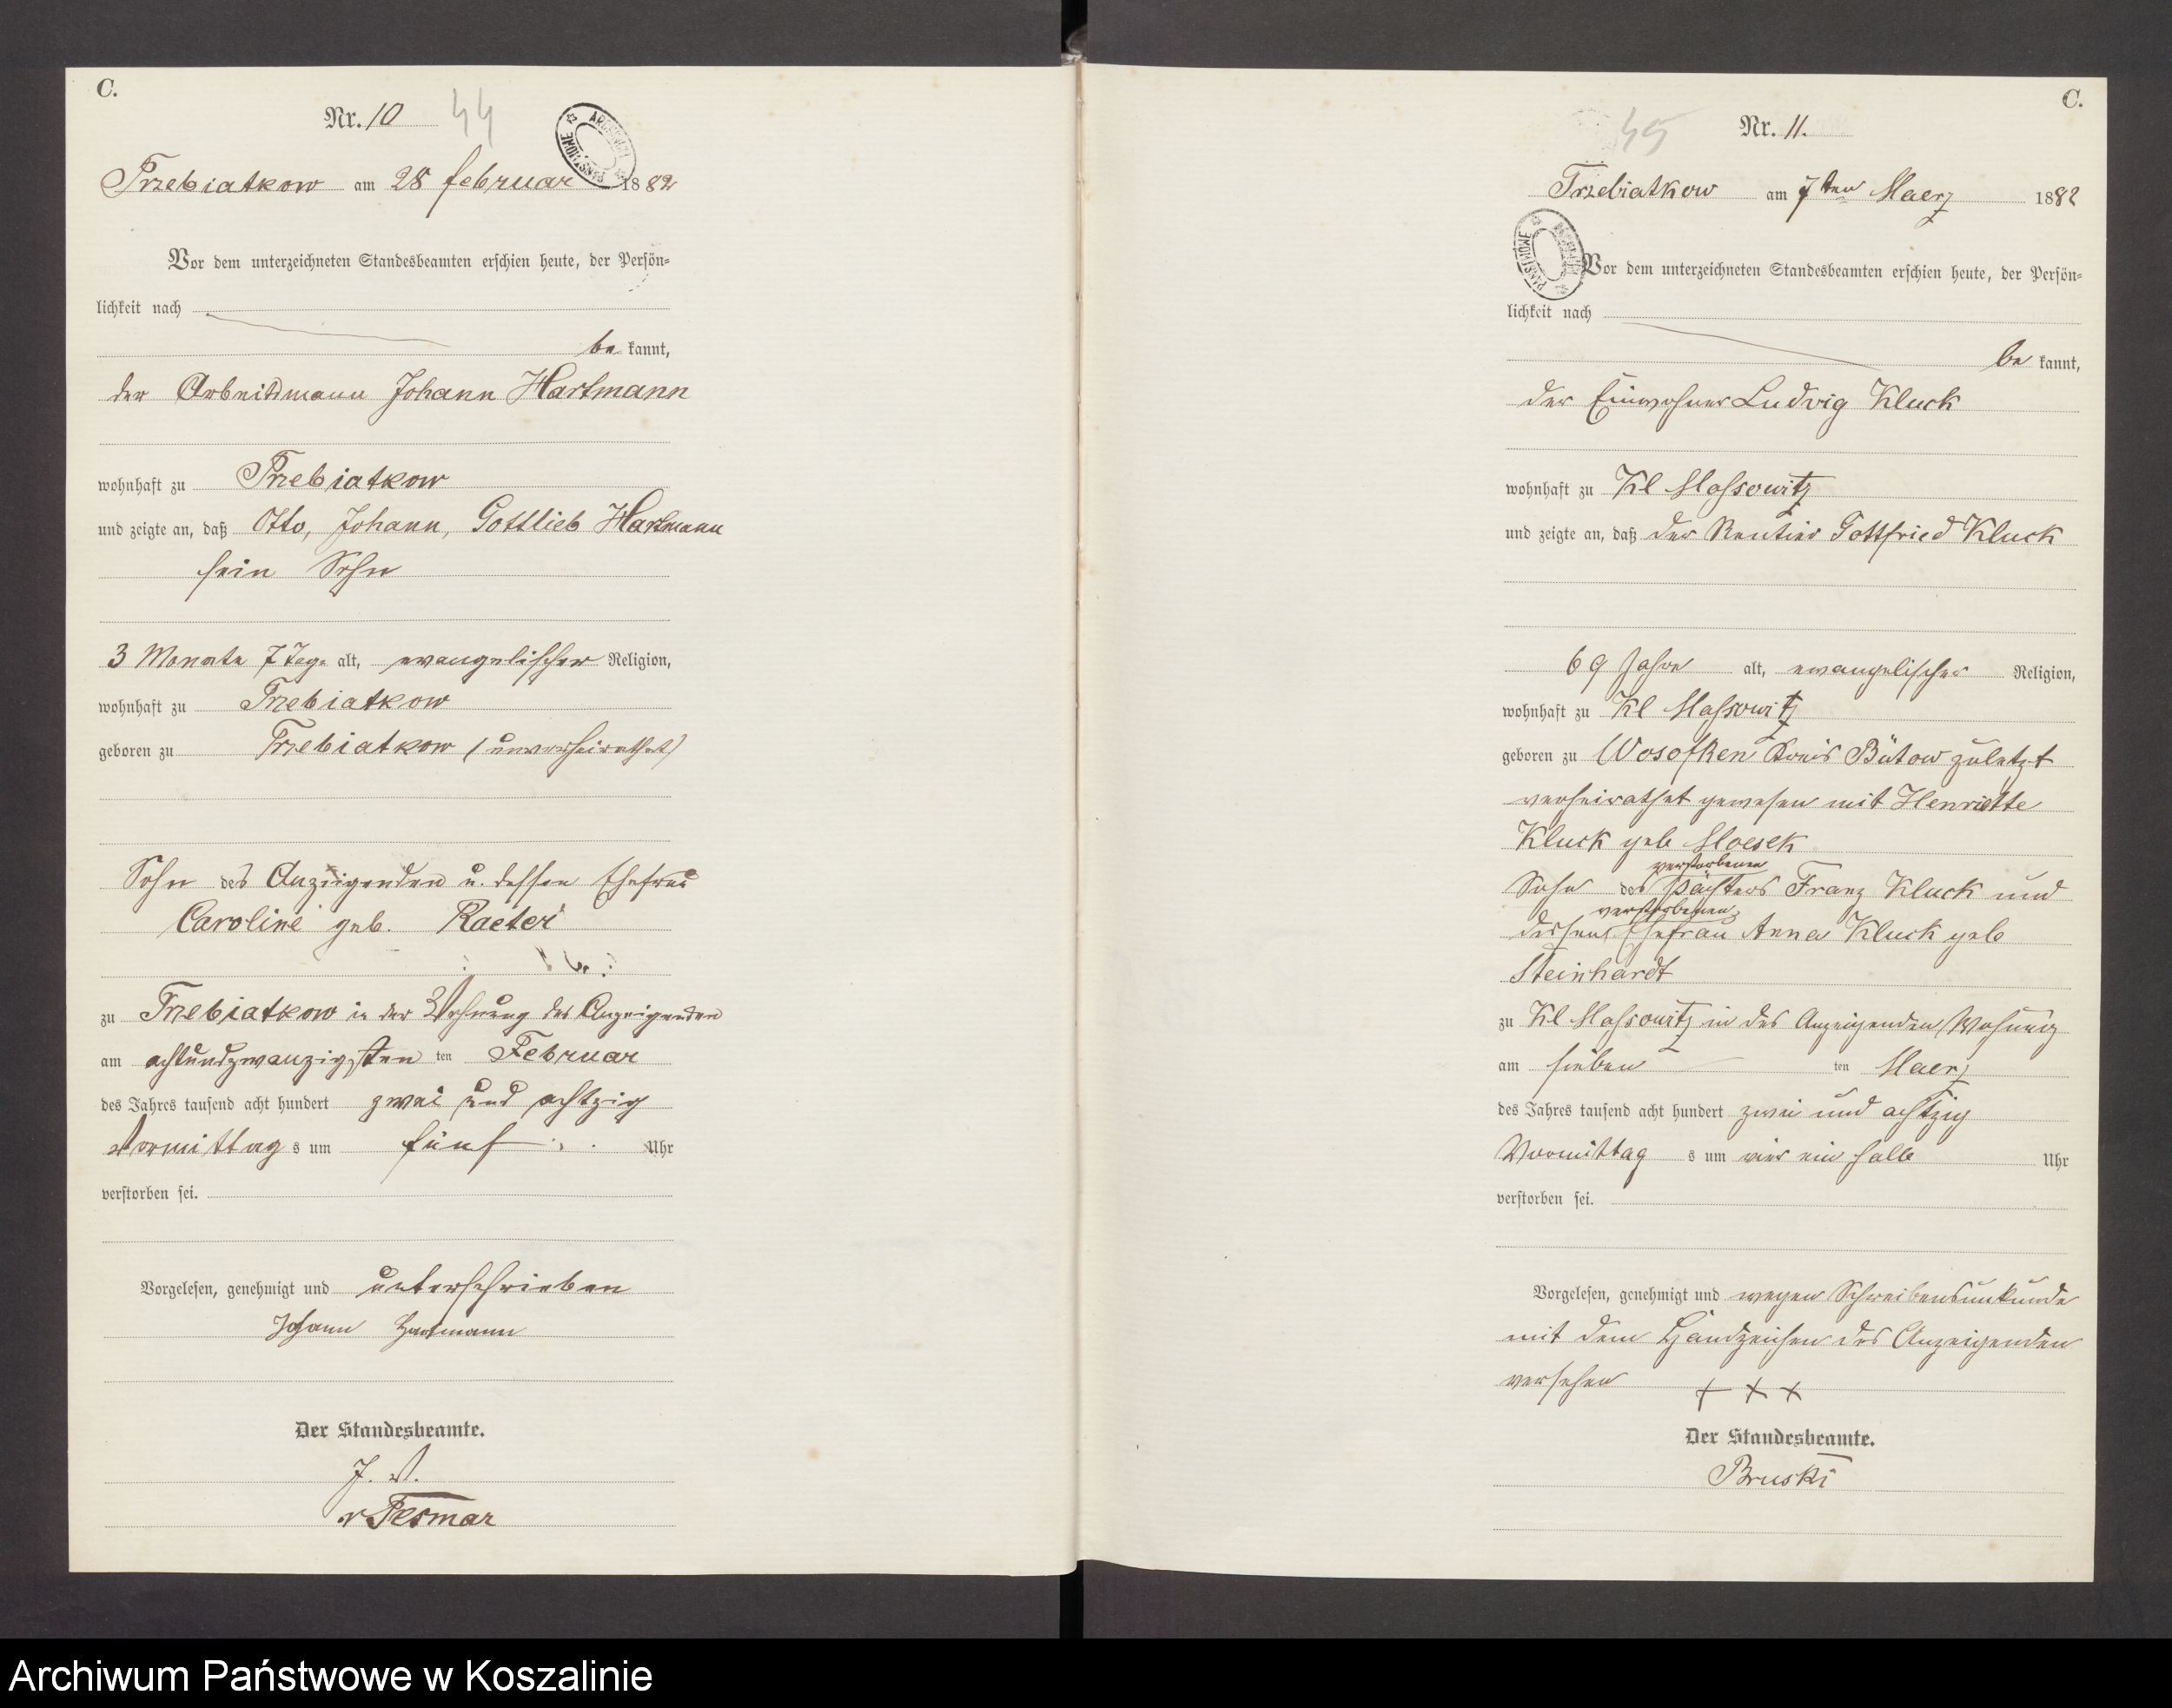 C.
Nr. 10 44
ARCHIWUM PAŃSTWOWE
Trzebiatkow am 28 februar 1882
Vor dem unterzeichneten Standesbeamten erschien heute, der Persön=
lichkeit nach
be kannt,
der Arbeitsmann Johann Hartmann
wohnhaft zu Trzebiatkow
und zeigte an, daß Otto, Johann, Gottlieb Hartmann
sein Sohn
3 Monate 7 Tage alt, evangelischer Religion,
wohnhaft zu Trzebiatkow
geboren zu Trzebiatkow (unverheirathet)
Sohn des Anzeigenden u. dessen Ehefrau
Caroline geb. Raeter
zu Trzebiatkow in der Wohnung des Anzeigenden
am achtundzwanzigsten ten Februar
des Jahres tausend acht hundert zwei und achtzig
Vormittag s um fünf Uhr
verstorben sei.
Vorgelesen, genehmigt und unterschrieben
Johann Hartmann
Der Standesbeamte.
J. V.
v Tesmar
C.
45 Nr. 11.
Trzebiatkow am 7ten Maerz 1882
ARCHIWUM PAŃSTWOWE
Vor dem unterzeichneten Standesbeamten erschien heute, der Persön=
lichkeit nach
be kannt,
der Einwohner Ludvig Kluck
wohnhaft zu Kl Massowitz
und zeigte an, daß der Rentier Gottfried Kluck
69 Jahre alt, evangelischer Religion,
wohnhaft zu Kl Massowitz
geboren zu Kreis Bütow zuletzt
verheirathet gewesen mit Henriette
Kluck geb
verstorbenen
Sohn des Pächters Franz Kluck und
verstorbenen
dessen Ehefrau Anna Kluck geb
Steinhardt
zu Kl Massowitz in des Anzeigenden Wohnung
am sieben ten Maerz
des Jahres tausend acht hundert zwei und achtzig
Vormittag s um vier ein halb Uhr
verstorben sei.
Vorgelesen, genehmigt und wegen Schreibensunkunde
mit dem Handzeichen des Anzeigenden
versehen
+ + +
Der Standesbeamte.
Bruski
Archiwum Państwowe w Koszalinie